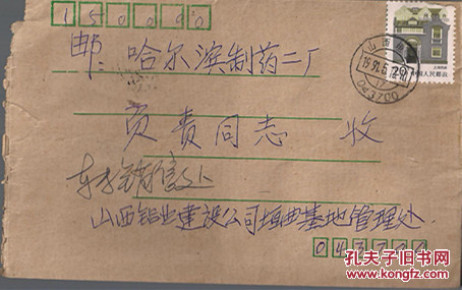 150090
邮 哈尔滨制药二厂
负责同志 收
山西铝业建设公司垣曲基地管理处
043700
山西
043700
中国人民邮政
孔夫子旧书网
www.kongfz.com